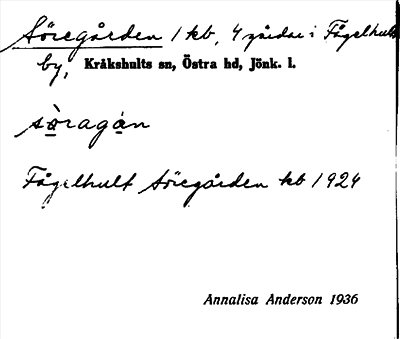 Söregården 1 kb, 4 gårdar i Fågelhults
by, Kråkshults sn, Östra hd, Jönk. l.
sòragán
Fågelhult Söregården kb 1924
Annalisa Anderson 1936